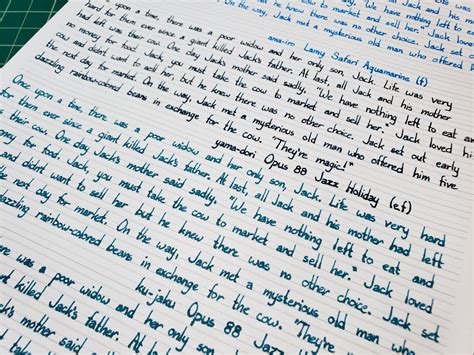 nothing left to
and sell her."
he knew there was no other choice. Jack set
On the way, Jack met a mysterious old man who offered
ama-iro Lamy Safari Aquamarine (f)
upon a time, there was a poor widow and her only son, Jack. Life was very
hard for them ever since a giant killed Jack's father. At last, all Jack and his mother
had left was their cow. One day Jack's mother said sadly, "We have nothing left to eat and
no money for food. Jack, you must take the cow to market and sell her." Jack loved
the cow and didnt want to sell her but he knew there was no other choice. Jack set out early
the next day for market. On the way, Jack met a mysterious old man who offered him five
dazzling rainbow-colored beans in exchange for the cow. "They're magic!"
yama-dori Opus 88 Jazz Holiday (ef)
Once upon a time, there was a poor widow and her only son, Jack. Life was very hard
for them ever since a giant killed Jack's father. At last, all Jack and his mother had left
their cow. One day Jack's mother said sadly, "We have nothing left to eat and
money for food. Jack, you must take the cow to market and sell her." Jack loved
and didnt want to sell her but he knew there was no other choice. Jack set
the next day for market. On the way, Jack met a mysterious old man who
dazzling rainbow-colored beans in exchange for the cow. "They're
ku-jaku Opus 88 Jazz
was a poor widow and her only son
giant killed Jack's father. At last,
Jack's mother said sadly,
must take